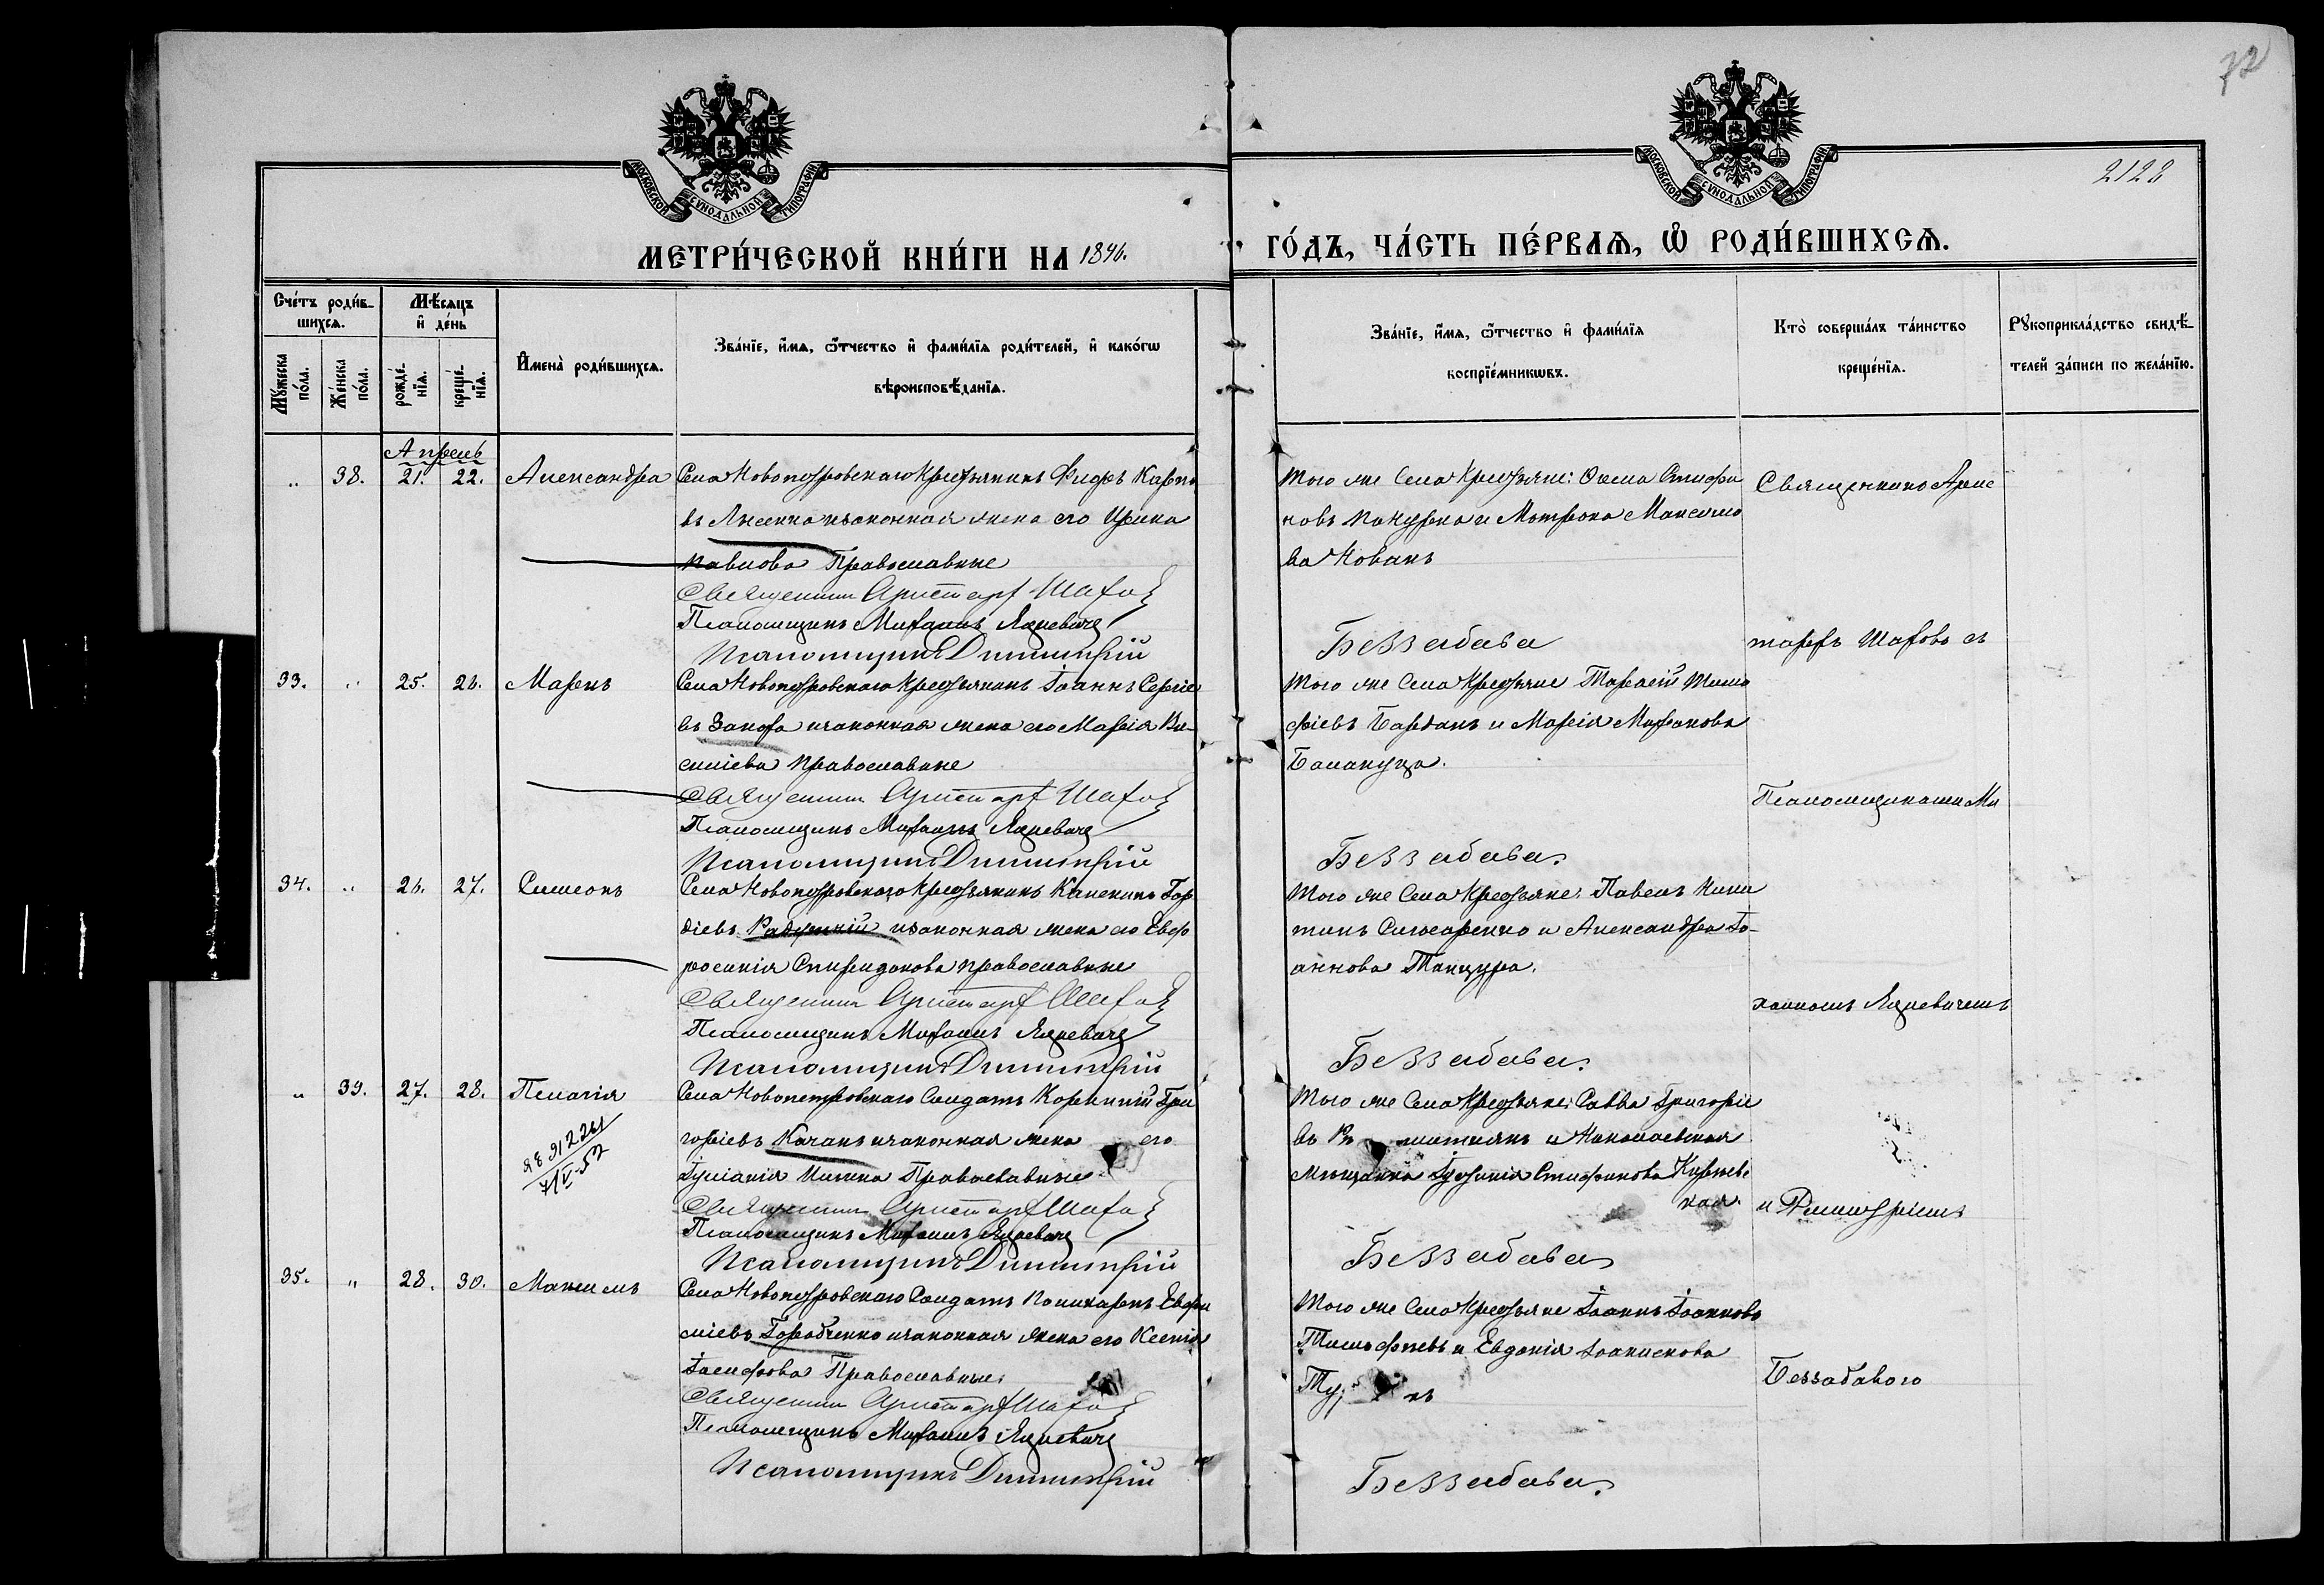 72
2128
МОСКОВСКОЙ СѴНОДАЛЬНОЙ ТИПОГРАФІИ
МОСКОВСКОЙ СѴНОДАЛЬНОЙ ТИПОГРАФІИ
МЕТРИ́ЧЕСКОЙ КНИ́ГИ НА 1896. ГО́ДЪ, ЧА́СТЬ ПЕ́РВАѦ, Ѡ РОДИ́ВШИХСѦ.
Сче́тъ роди́в-
шихсѧ.
Мѣ́сѧцъ
и҆ де́нь
Мꙋ́жеска по́ла.
Же́нска по́ла.
рожде́нїѧ.
креще́нїѧ.
И҆мена̀ роди́вшихсѧ.
Зва́нїе, и҆́мѧ, ѻ҆́тчество и҆ фами́лїѧ роди́телей, и҆ како́гѡ
вѣроисповѣ́данїѧ.
Зва́нїе, и҆́мѧ, ѻ҆́тчество и҆ фами́лїѧ
воспрїе́мникѡвъ.
Кто̀ соверша́лъ та́инство
креще́нїѧ.
Рꙋкоприкла́дство свидѣ́-
телей за́писи по жела́нїю.
Апрель
" 38. 21. 22. Александра Села Новопетровскаго Крестьянинъ Фирсъ Карпо
въ Лисенко и законная жена его Ирина
Павлова Православные
Священникъ Аристархъ Шаховъ
Псаломщикъ Михаилъ Яцкевичъ
Псаломщикъ Димитрій
Того же Села Крестьяне: Ѳома Стефа
новъ и Матрона Максимо
ва Кованъ
Беззабава
Священникъ Арис
тархъ Шаховъ съ
33. " 25. 26. Маркъ Села Новопетровскаго Крестьянинъ Іоаннъ Сергіе
въ Заноза и законная жена его Марѳія Ва-
силіева Православные
Священникъ Аристархъ Шаховъ
Псаломщикъ Михаилъ Яцкевичъ
Псаломщикъ Димитрій
Того же Села Крестьяне Тарасій Тимо
фіевъ Барданъ и Марѳія
Балануца.
Беззабава.
Псаломщиками Ми
34. " 26. 27. Симеонъ Села Новопетровскаго Крестьянинъ Каленикъ Гор
діевъ Радуцкій и законная жена его Евф
росинія Спиридонова Православные
Священникъ Аристархъ Шаховъ
Псаломщикъ Михаилъ Яцкевичъ
Псаломщикъ Димитрій
Того же Села Крестьяне: Павелъ Ники
тинъ Слюсаренко и Александра Іо-
аннова Танцура.
Беззабава.
хаиломъ Яцкевичемъ
" 39. 27. 28. Пелагія Села Новопетровскаго Солдатъ Корнилій Гри
горіевъ Качанъ и законная жена его
Іуліанія Ильина Православные
Священникъ Аристархъ Шаховъ
Псаломщикъ Михаилъ Яцкевичъ
Псаломщикъ Димитрій
Того же Села Крестьяне: Савва Григоріе
въ и Николаевская
Мѣщанка Стефанова
кая.
Беззабава
и Димитріемъ
35. " 28. 30. Максимъ Села Новопетровскаго Солдатъ Поликарпъ Евфи
міевъ Горобченко и законная жена его Ксенія
Іосифова Православные.
Священникъ Аристархъ Шаховъ
Псаломщикъ Михаилъ Яцкевичъ
Псаломщикъ Димитрій
Того же Села Крестьяне Іоаннъ Іоанновъ
Тимофѣевъ и Евдокія
Беззабава.
Беззабавого